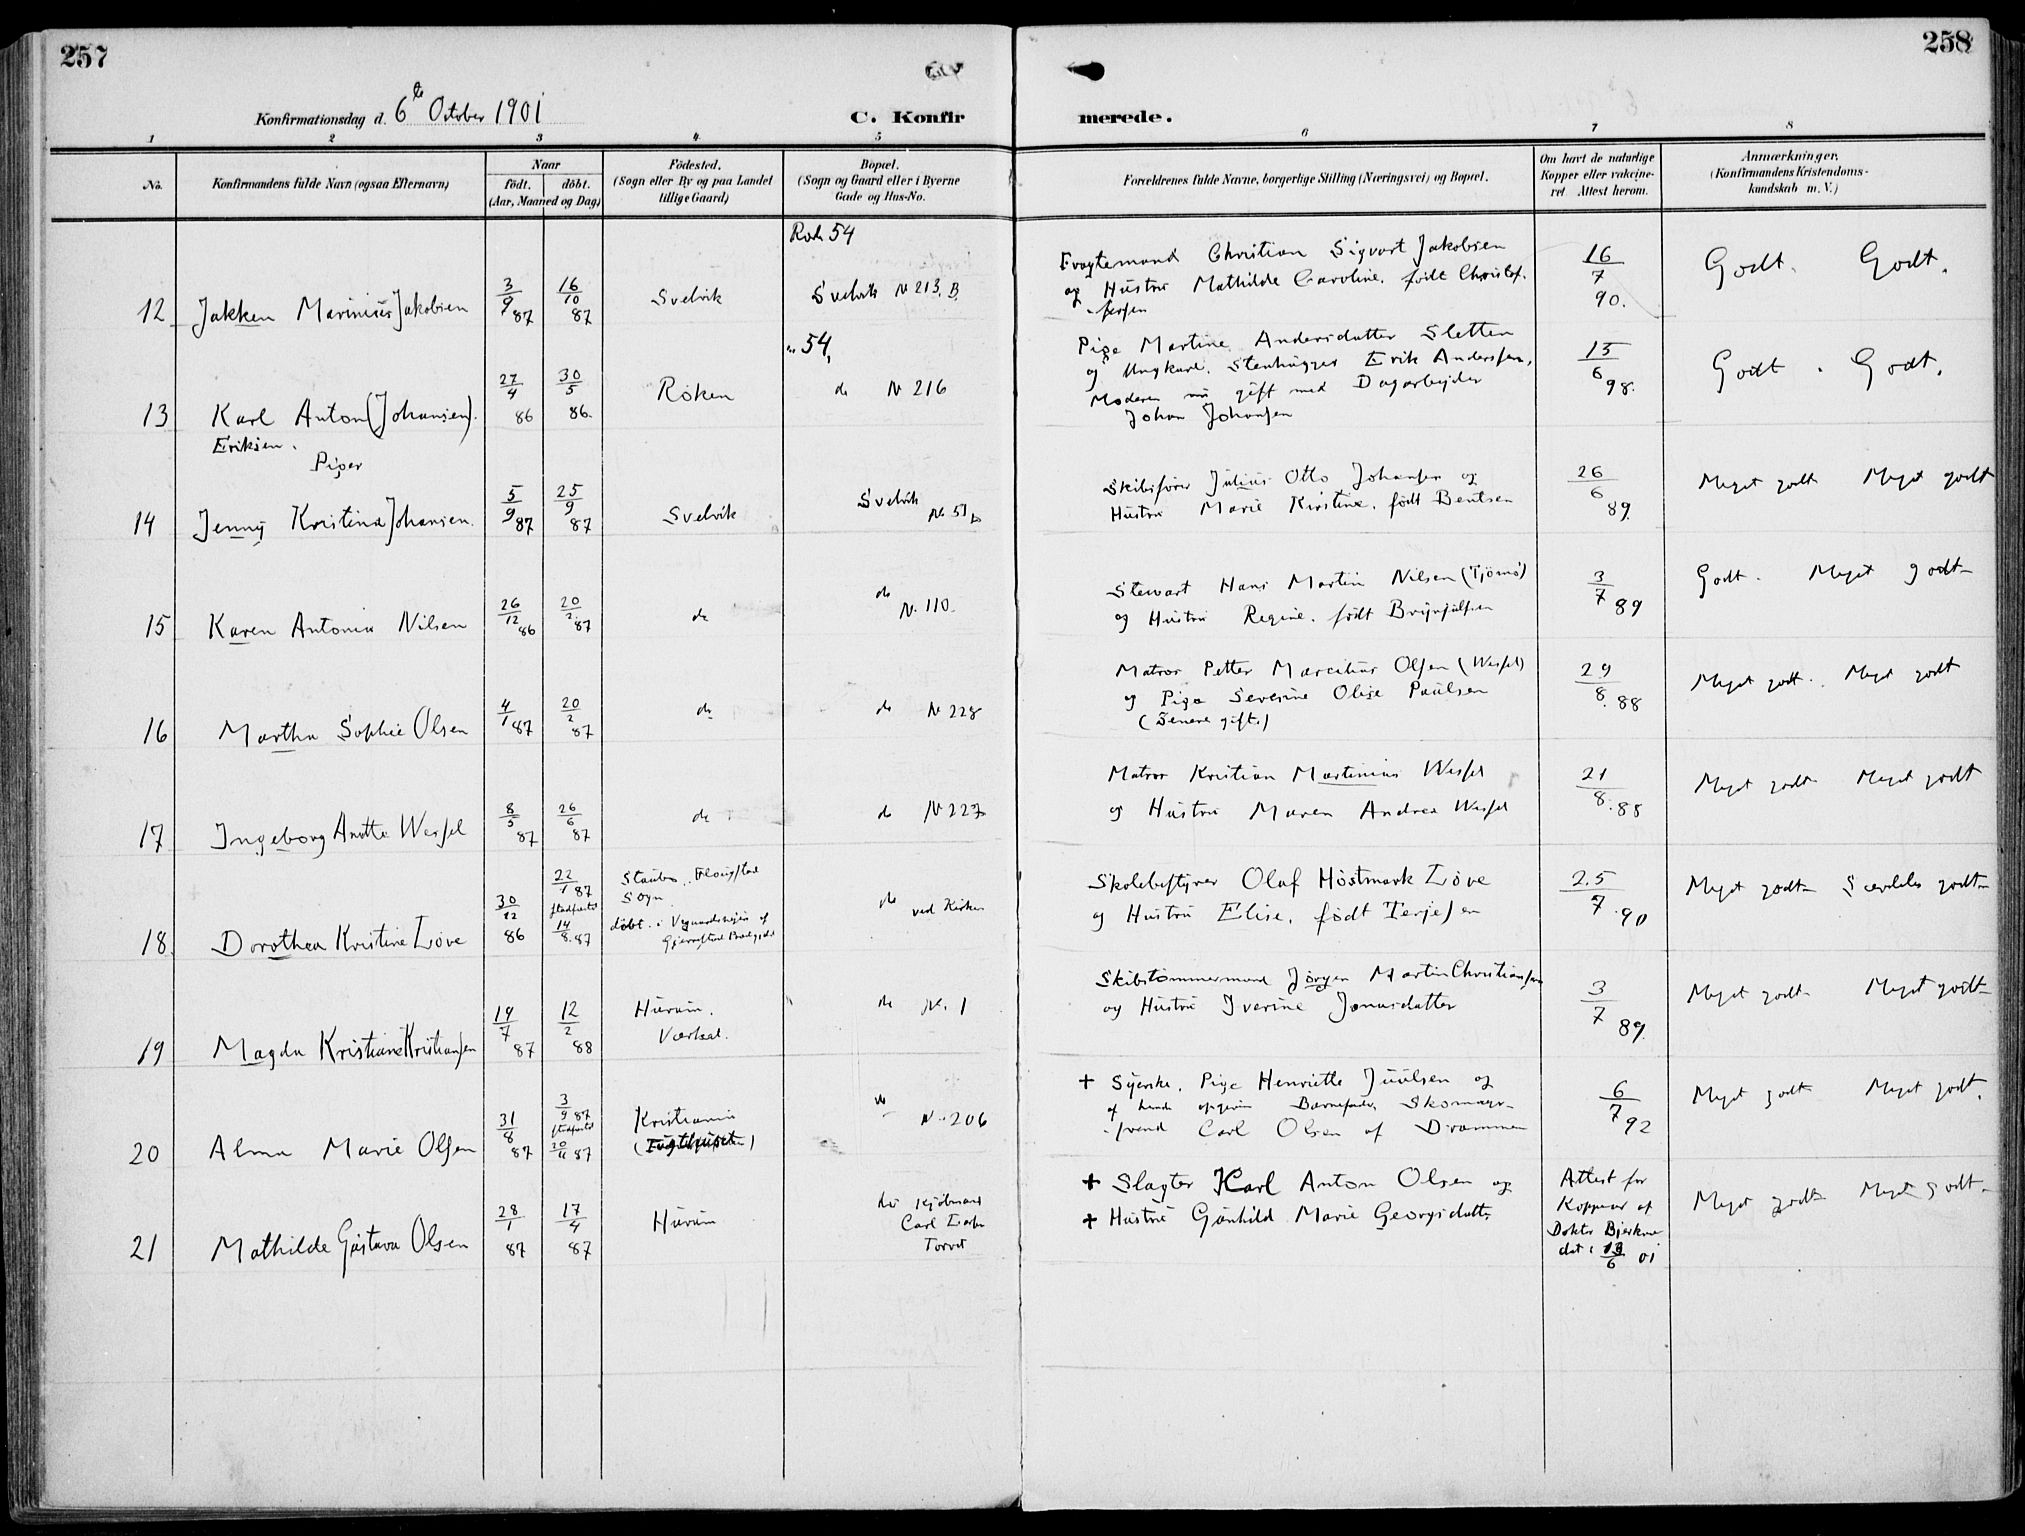 257
258
Konfirmationsdag d. 6te October 1901
C. Konfir merede.
1 2 3 4 5 6 7 8
No.
Konfirmandens fulde Navn (ogsaa Efternavn)
Naar
födt. döbt.
(Aar, Maaned og Dag)
Födested.
(Sogn eller By og paa Landet
tillige Gaard)
Bopæl.
(Sogn og Gaard eller i Byerne
Gade og Hus-No.
Forældrenes fulde Navne, borgerlige Stilling (Næringsvei) og Bopæl.
Om havt de naturlige
Kopper eller vakcine-
ret Attest herom.
Anmærkninger.
(Konfirmandens Kristendoms-
kundskab m. V.)
12 Jakken Marinius Jakobsen
3/9 87
16/10 87
Svelvik
Rode 54
Svelvik N 213. B.
Fragtemand Christian Sigvart Jakobsen
og Hustru Mathilde Caroline. født Christof-
-fersen
16/7 90.
Godt. Godt.
13 Karl Anton (Johansen).
Eriksen.
27/4 86
30/5 86.
Röken
" 54,
do N 216
Pige Martine Andersdatter Sletten
og Ungkarl. Stenhugger Erik Anderssen,
Moderen nu gift med Dagarbejder
Johan Johansen
15/6 98.
Godt. Godt.
Piger
14 Jenny Kristina Johansen.
5/9 87
25/9 87
Svelvik
Svelvik
N. 51 b
Skibsfører Julius Otto Johansen og
Hustru Marie Kirstine. født Bentsen
26/6 89.
Meget godt Meget godt
15 Karen Antonia Nilsen
26/12 86
20/2 87
do
do
N. 110.
Stewart Hans Martin Nilsen (Tjömö)
og Hustru Regine. født Brynjulfsen
3/7 89
Godt. Meget godt
16 Martha Sophie Olsen
4/1 87
20/2 87
do
do N 228
Matros Petter Marcilius Olsen (Wesfel)
og Pige Severine Olise Paulsen
(Senere gift.)
29/8. 88
Meget godt. Meget godt
17 Ingeborg Anette Wesfel
8/5 87
26/6 87
do
do N 227
Matros Kristian Martinius Wesfel
og Hustru Maren Andrea Wesfel
21/8. 88
Meget godt Meget godt
18. Dorothea Kristine Löve
30/12 86
22/1 87
stadfæstet
14/8. 87
Sogn
döbt. i
do
ved Kirken
Skolebestyrer Olaf Höstmark Löve
og Hustru Elise, født Terjesen
25/7. 90
Meget godt Særdeles godt
19 Magda Kristiane Kristiansen
19/7 87
12/2 88
Hurum.
do N. 1
Skibstömmermand Jörgen Martin Christiansen
og Hustru Iverine Jonasdatter
3/7 89.
Meget godt Meget godt
20 Alma Marie Olsen
31/8 87
3/9 87
stadfæstet
20/11 87
Kristiania
do
N. 206
+ Syerske. Pige Henriette Juulsen og
af hende opgiven Barnefader, Skomager-
-svend Carl Olsen af Drammen
6/7 92
Meget godt Meget godt.
21 Mathilde Gustava Olsen
28/1 87
17/4 87
Hurum
do Kjöbmand
Carl
Torvet
+ Slagter Karl Anton Olsen og
+ Hustru Gunhild Marie Georgsdatter
Attest for
Kopperne af
Doktor Bjerkne
dat. 13/6 01
Meget godt Meget godt.